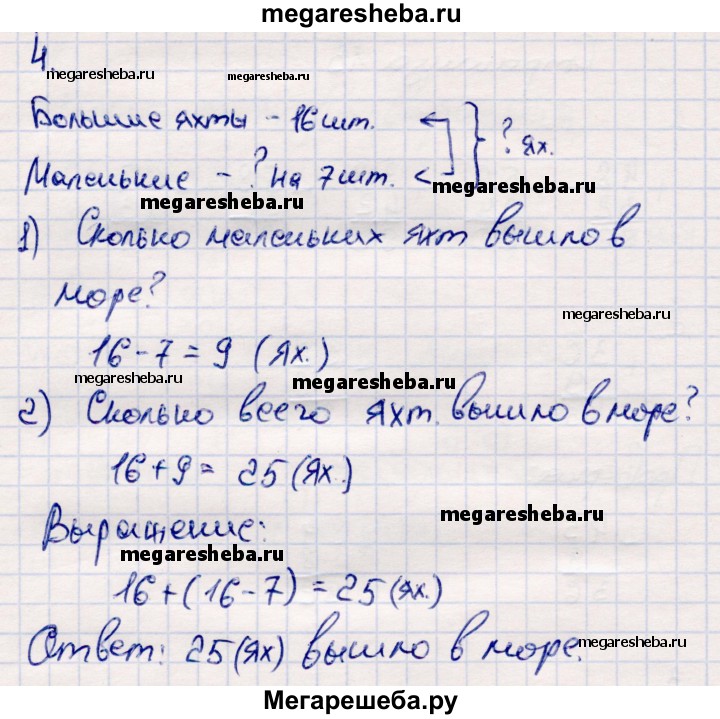 megaresheba.ru
4
megaresheba.ru megaresheba.ru
Большие яхты - 16 шт. } ? ях.
Маленькие - ? на 7 шт. <
megaresheba.ru megaresheba.ru
1) Сколько маленьких яхт вышло в
море?
megaresheba.ru
16 - 7 = 9 (ях.)
megaresheba.ru megaresheba.ru
2) Сколько всего яхт вышло в море?
16 + 9 = 25 (ях.)
megaresheba.ru
Выражение:
megaresheba.ru megaresheba.ru
16 + (16 - 7) = 25 (ях.)
Ответ: 25 (ях) вышло в море.
megaresheba.ru
Мегарешеба.ру